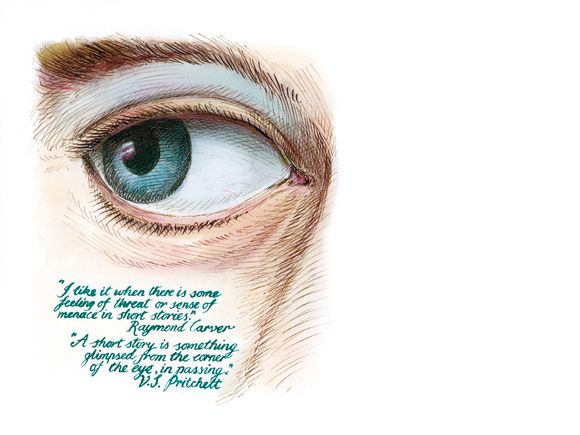 "I like it when there is some
feeling of threat or sense of
menace in short stories."
Raymond Carver
"A short story is something
glimpsed from the corner
of the eye, in passing."
V.S. Pritchett